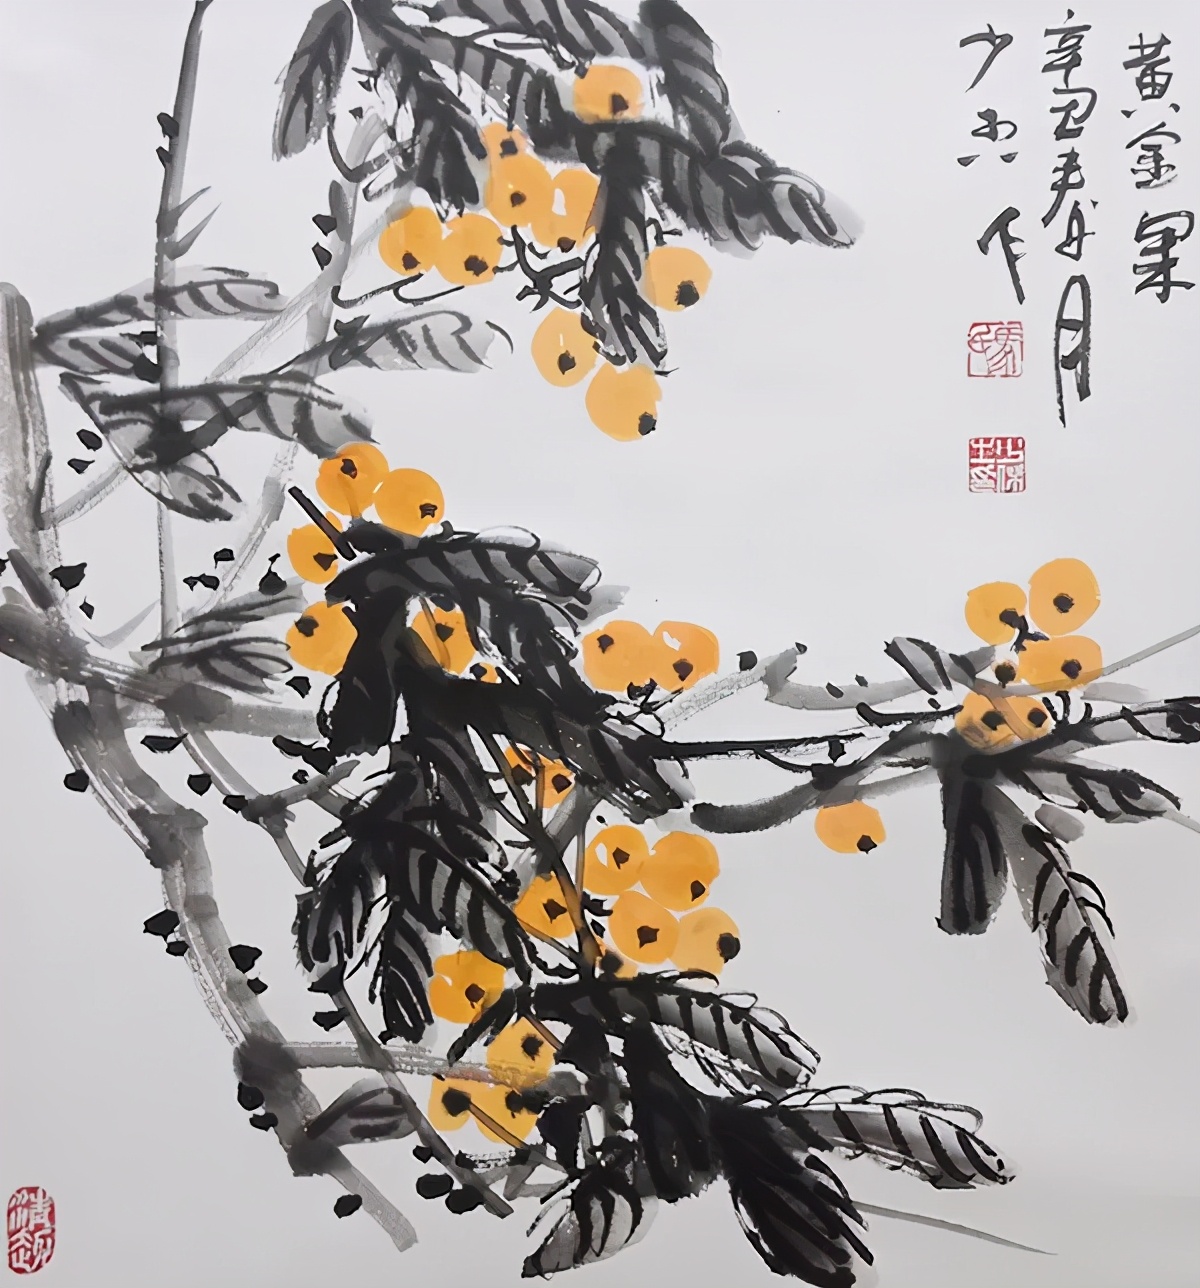 黄金果
辛丑春月
少杰作
清趣